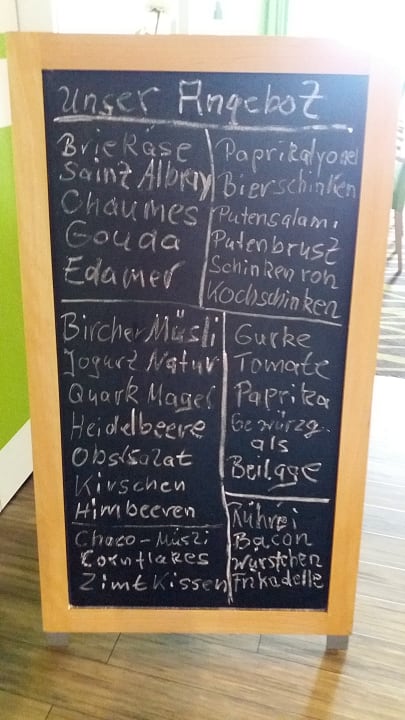 Unser Angebot
Briekäse
Sainz Albray
Chaumes
Gouda
Edamer
Paprikalyoner
Bierschinken
Putensalami
Putenbrust
Schinken roh
Kochschinken
Bircher Müsli
Jogurt Natur
Quark Mager
Heidelbeere
Obstsalat
Kirschen
Himbeeren
Choco-Müsli
Cornflakes
Zimt Kissen
Gurke
Tomate
Paprika
Gewürzg.
als
Beilage
Rührei
Bacon
Würstchen
Frikadelle